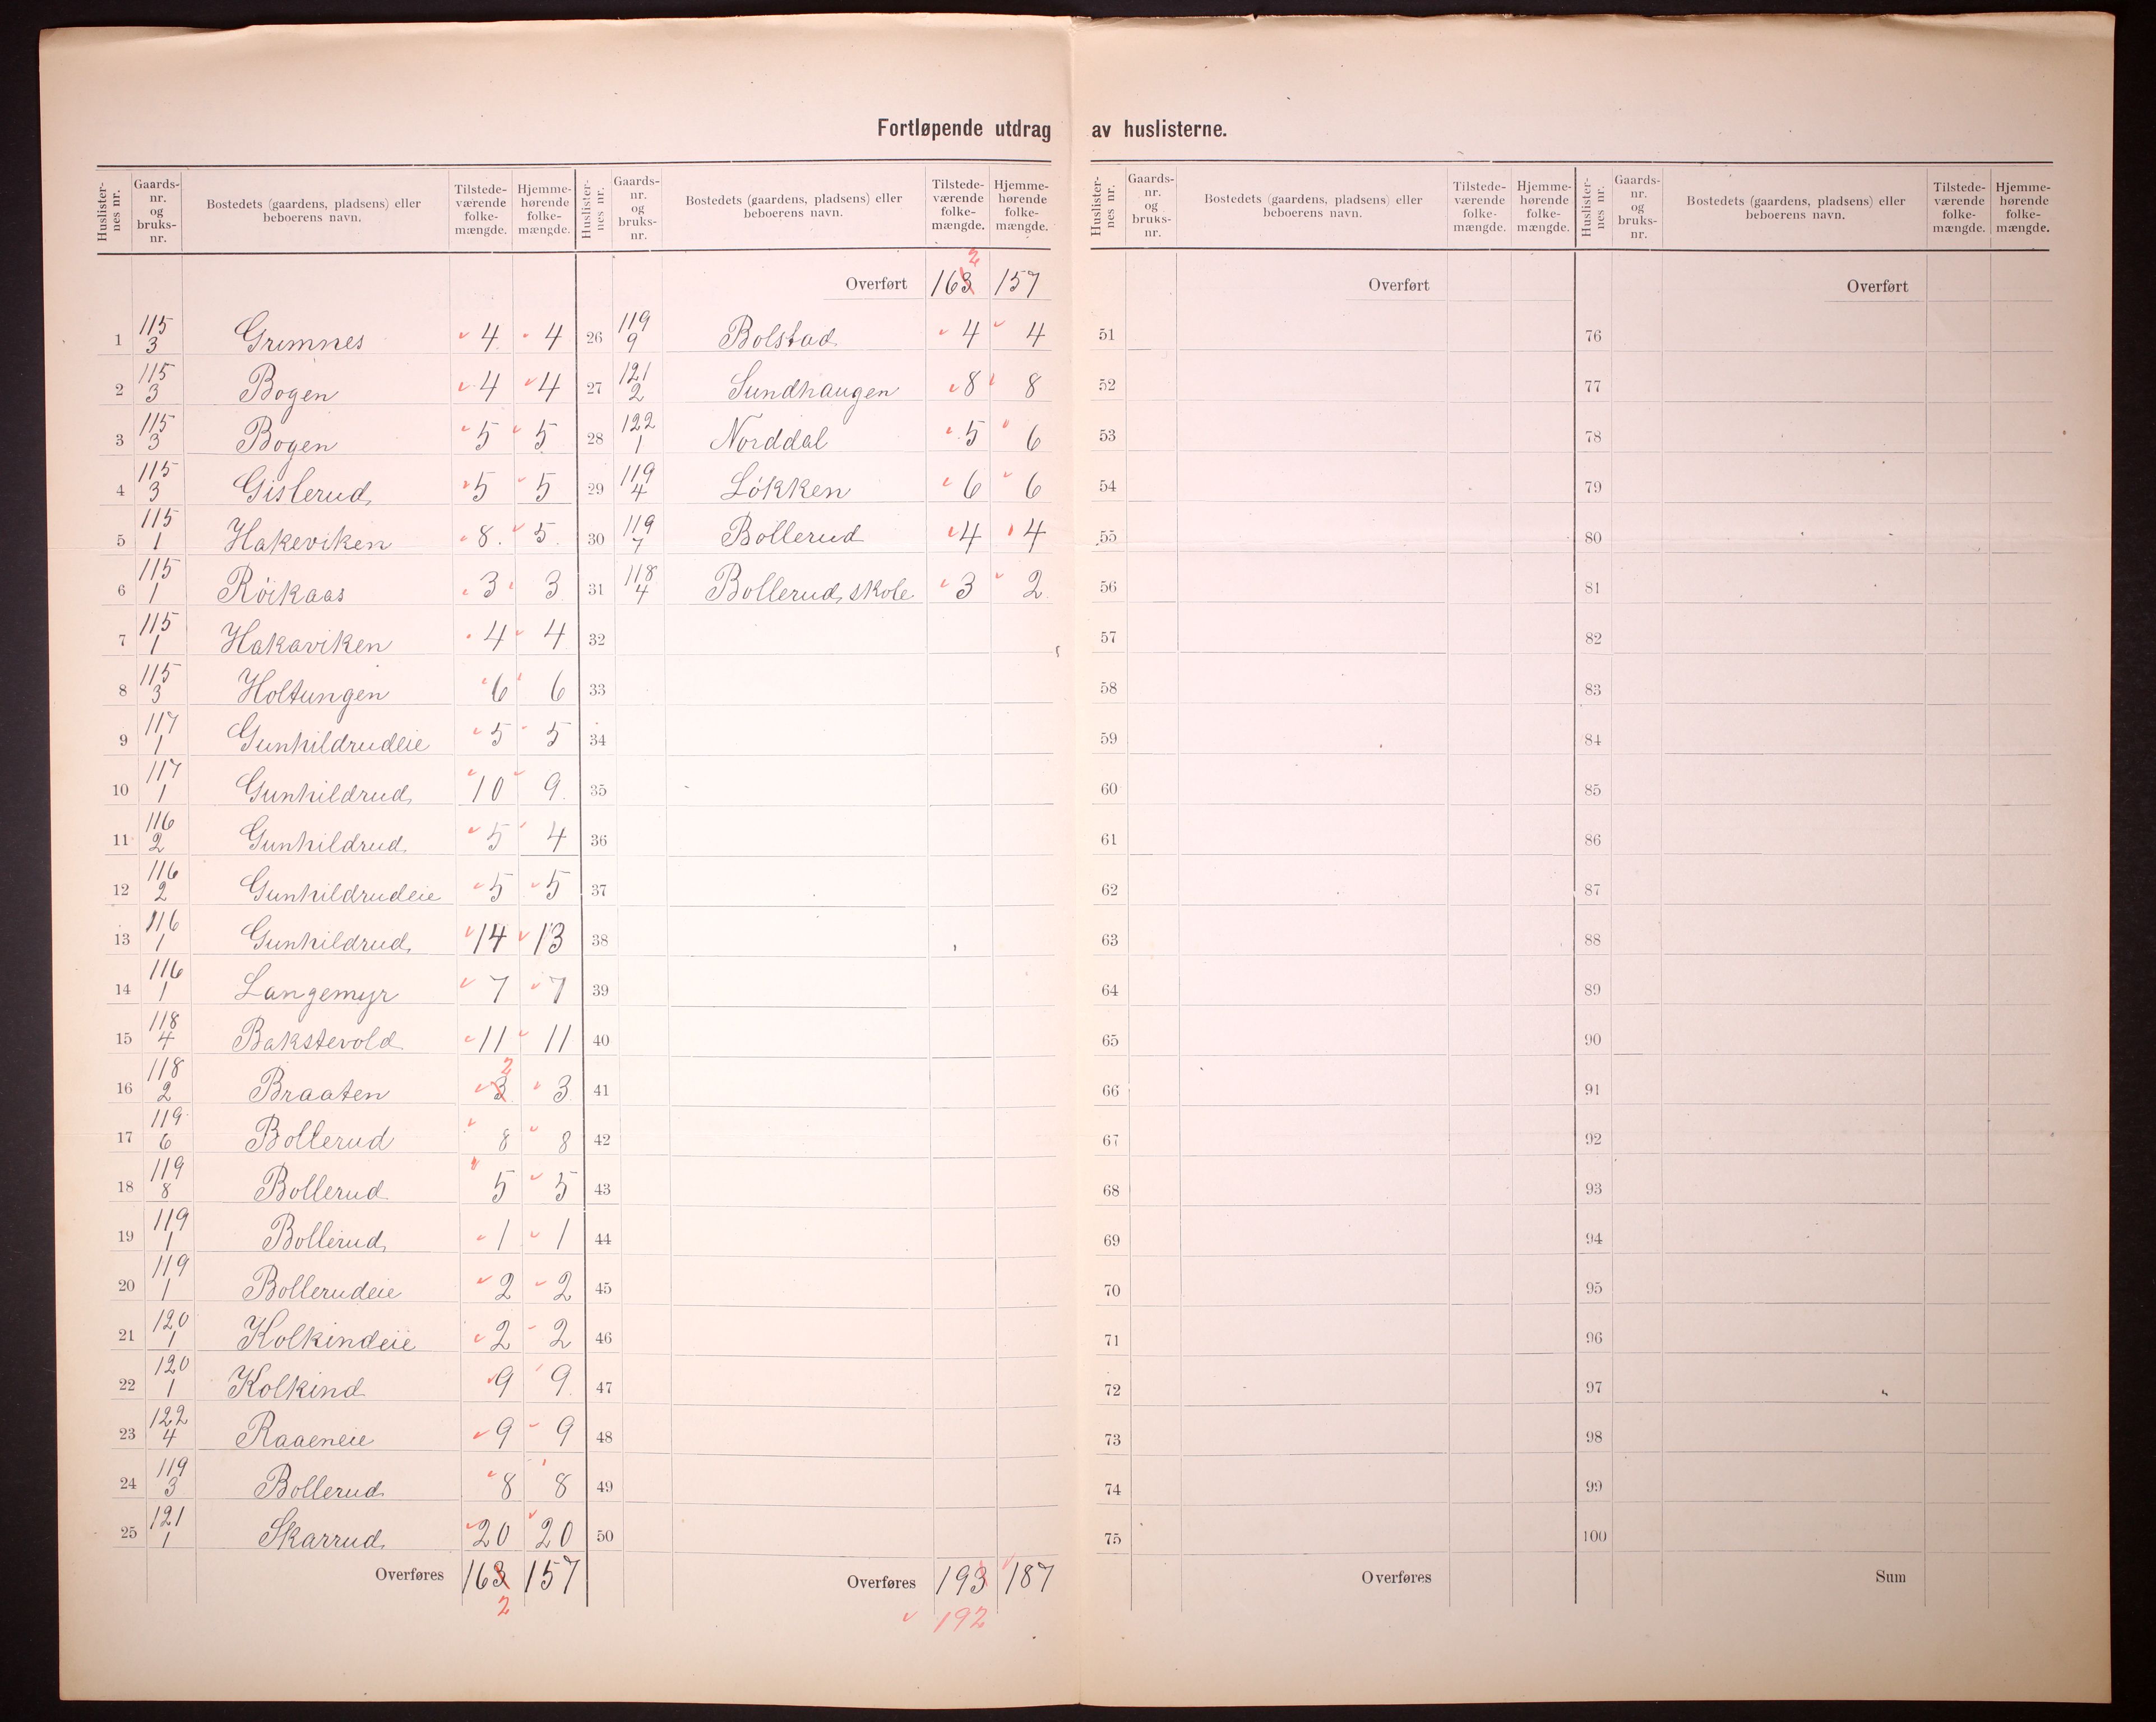 Fortløpende utdrag av huslisterne.
Huslisternes nr. | Gaards-nr. og bruks-nr. | Bostedets (gaardens, pladsens) eller beboerens navn. | Tilstede-værende folke-mængde. | Hjemme-hørende folke-mængde.
1 | 115 3 | Grimnes | 4 | 4
2 | 115 3 | Bogen | 4 | 4
3 | 115 3 | Bogen | 5 | 5
4 | 115 3 | Gislerud | 5 | 5
5 | 115 1 | Hakeviken | 8. | 5.
6 | 115 1 | Röikaas | 3 | 3
7 | 115 1 | Hakaviken | 4 | 4
8 | 115 3 | Holtungen | 6 | 6
9 | 117 1 | Gunhildrudeie | 5 | 5
10 | 117 1 | Gunhildrud | 10 | 9.
11 | 116 2 | Gunhildrud | 5 | 4
12 | 116 2 | Gunhildrudeie | 5 | 5
13 | 116 1 | Gunhildrud | 14 | 13
14 | 116 1 | Langemyr | 7 | 7
15 | 118 4 | Bakstevold | 11 | 11
16 | 118 2 | Braaten | 3 2 | 3
17 | 119 6 | Bollerud | 8 | 8
18 | 119 8 | Bollerud | 5 | 5
19 | 119 1 | Bollerud | 1 | 1
20 | 119 1 | Bollerudeie | 2 | 2
21 | 120 1 | Kolkindeie | 2 | 2
22 | 120 1 | Kolkind | 9 | 9.
23 | 122 4 | Raaeneie | 9 | 9
24 | 119 3 | Bollerud | 8 | 8
25 | 121 1 | Skarrud | 20 | 20
Overføres | 163 2 | 157
Huslisternes nr. | Gaards-nr. og bruks-nr. | Bostedets (gaardens, pladsens) eller beboerens navn. | Tilstede-værende folke-mængde. | Hjemme-hørende folke-mængde.
Overført | 163 2 | 157
26 | 119 9 | Bolstad | 4 | 4
27 | 121 2 | Sundhaugen | 8 | 8
28 | 122 1 | Norddal | 5 | 6
29 | 119 4 | Lökken | 6 | 6
30 | 119 7 | Bollerud | 4 | 4
31 | 118 4 | Bollerud skole | 3 | 2.
32
33
34
35
36
37
38
39
40
41
42
43
44
45
46
47
48
49
50
Overføres | 193 | 187
192
Huslisternes nr. | Gaards-nr. og bruks-nr. | Bostedets (gaardens, pladsens) eller beboerens navn. | Tilstede-værende folke-mængde. | Hjemme-hørende folke-mængde.
Overført
51
52
53
54
55
56
57
58
59
60
61
62
63
64
65
66
67
68
69
70
71
72
73
74
75
Overføres
Huslisternes nr. | Gaards-nr. og bruks-nr. | Bostedets (gaardens, pladsens) eller beboerens navn. | Tilstede-værende folke-mængde. | Hjemme-hørende folke-mængde.
Overført
76
77
78
79
80
81
82
83
84
85
86
87
88
89
90
91
92
93
94
95
96
97
98
99
100
Sum